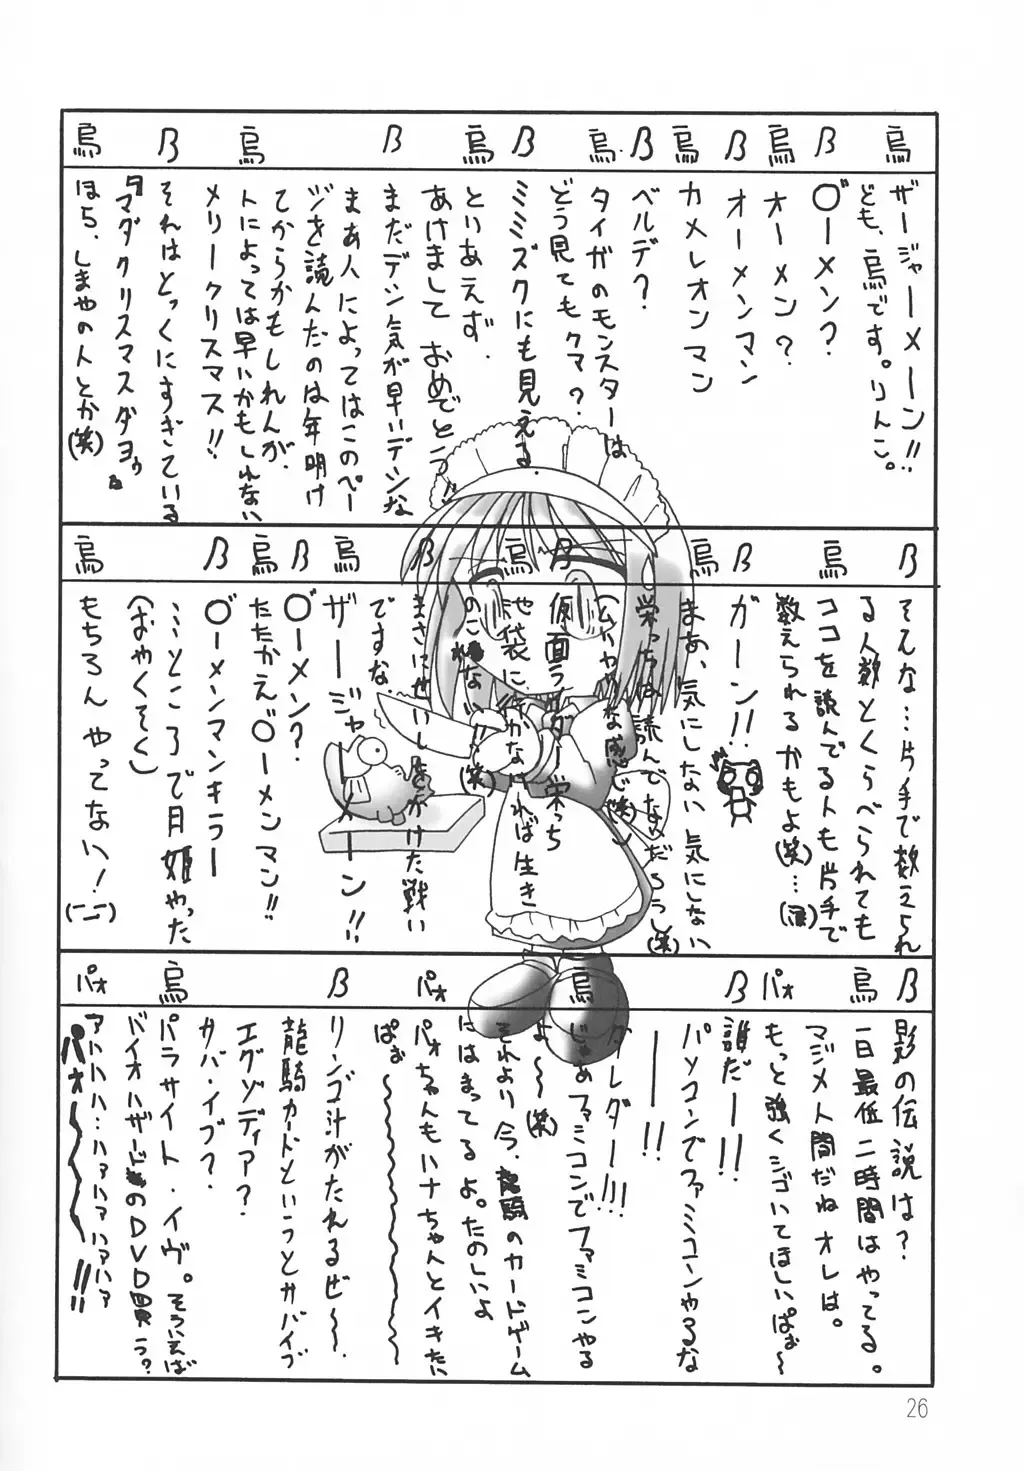 烏
ザージャーメーン!!
ども、烏です。りんこ。
B
〇゛ーメン?
烏
オーメン?
B
オーメンマン
烏
カメレオンマン
B
ベルデ?
烏
タイガのモンスターは
どう見てもクマ?
B
ミミズクにも見える
烏
とりあえず、
あけまして おめでとう!!
B
まだデンシ気が早いデンシな
烏
まあ人によってはこのペー
ジを読んだのは年明け
てからかもしれんが、
人によっては早いかもしれない
メリークリスマス!!
B
それはとっくにすぎている
烏
『マダクリスマスダヨゥ』
ほら、しまやの人とか(笑)
B
そんな…片手で数えられ
る人数とくらべられても
烏
ココを読んでる人も片手で
数えられるかもよ(笑)…(涙)
B
ガーン!!
烏
まあ、気にしない気にしない
栄っちは読んでなゐだろうし(笑)
B
仮面ライダー栄っち
(ムリヤリな感で(笑))
烏
池袋に行かなければ生き
のこれない(笑)
B
まさにせいしをかけた戦い
ですな
烏
ザージャーメーン!!
B
〇゛ーメン?
烏
たたかえ〇゛ーメンマン!!
B
〇゛ーメンマンキラー
…ところで月姫やった
(おやくそく)
烏
もちろんやってない!(ーーー)
B
影の伝説は?
烏
一日最低二時間はやってる。
マジメ人間だねオレは。
パオ
もっと強くシゴいてほしいぱお〜
B
誰だー!!
パソコンでファミコーンやるな
ー!!
烏
タレダー!!!
じゃあファミコンでファミコンやる
よ〜〜(笑)
それより今、龍騎のカードゲーム
にはまってるよ。たのしいよ
パオ
パオちゃんもハナちゃんとイキたい
ぱお〜〜〜〜
B
リンゴ汁がたれるぜ〜〜、
龍騎カードというとサバイブ
エグゾディア?
サバ・イブ?
烏
パラサイト・イヴ。そういえば
バイオハザードのDVD買う?
パオ
アハハハ…ハァハァハァハァ
パオーーーー!!
26